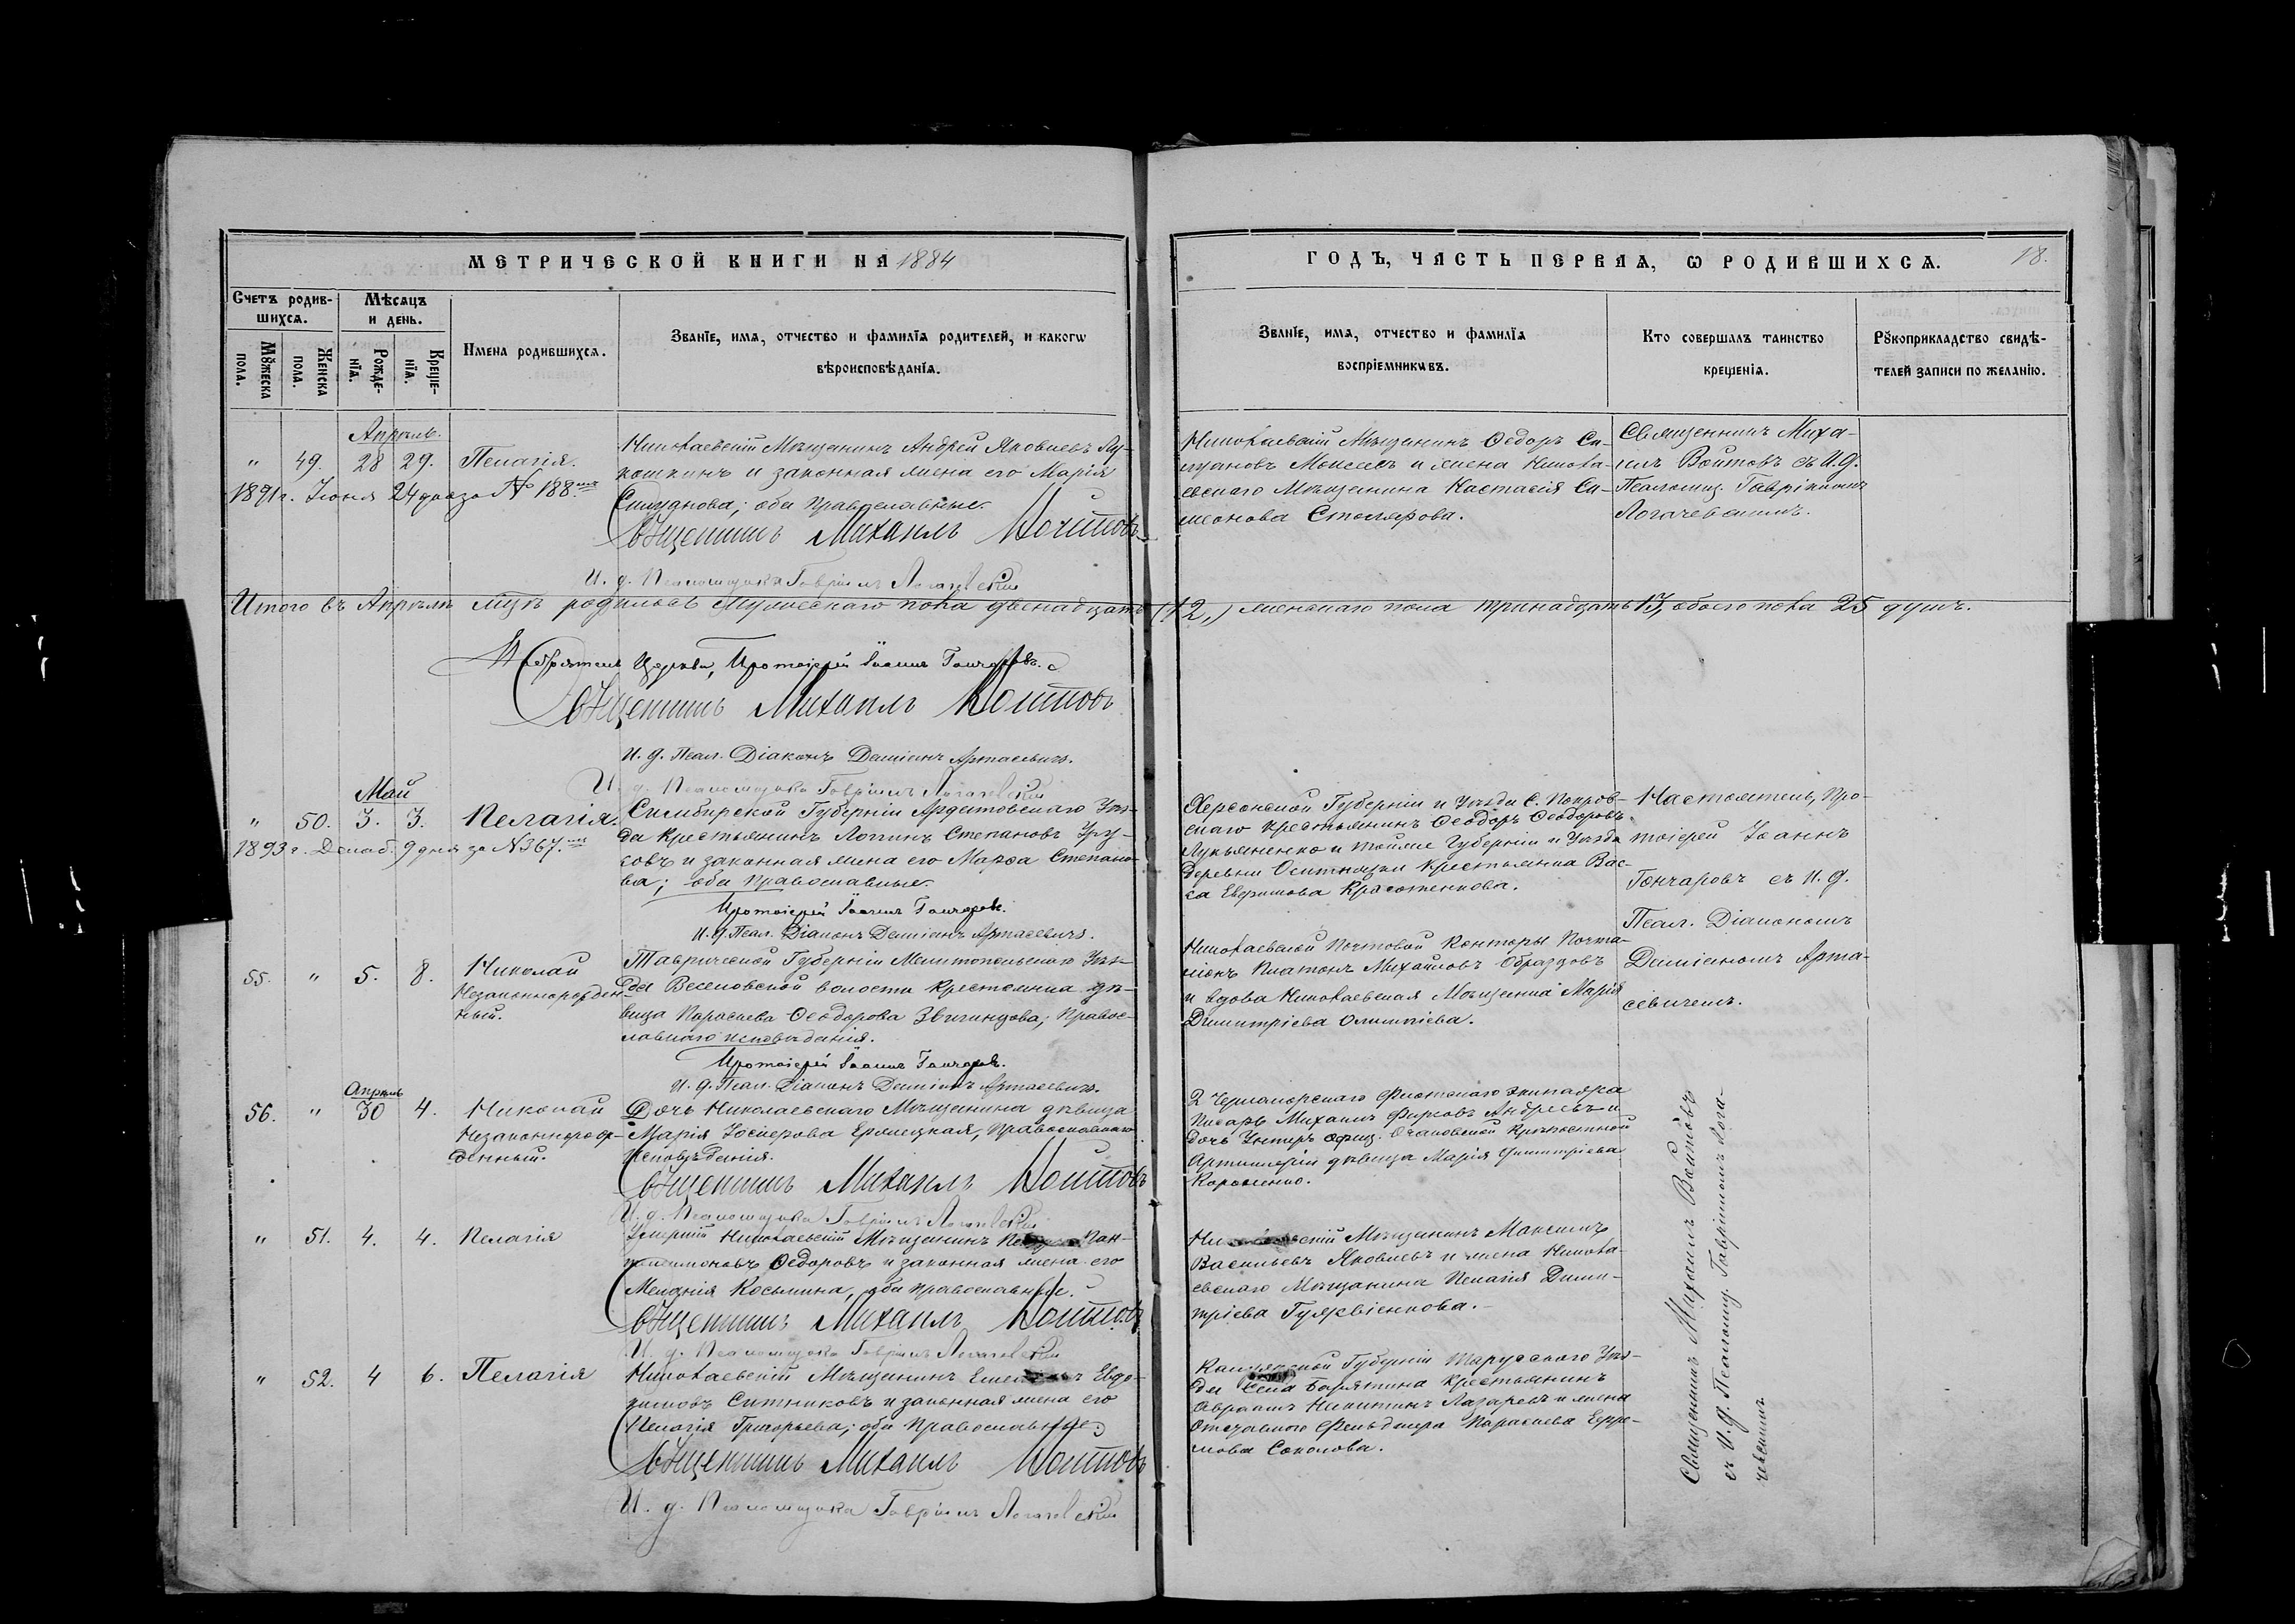 МЕТРИЧЕСКОЙ КНИГИ НА 1884
Счетъ родив-
шихся.
Мѣсяцъ
и день.
Мужеска
пола.
Женска
пола.
Рожде-
нія.
Креще-
нія.
Имена родившихся.
Званіе, имя, отчество и фамилія родителей, и какогѡ
вѣроисповѣданія.
Апрѣль.
" 49. 28 29. Пелагія.
1891 г. Іюня 24 дня за № 188
Николаевскій Мѣщанинъ Андрей Яковлевъ Лу-
кошкинъ и законная жена его Марія
оба православные.
Священникъ Михаилъ Войтовъ
И. д. Псаломщика Гавріилъ Логачевскій
Итого въ Апрѣлѣ мцѣ родилось мужескаго пола двенадцать
Настоятель Церкви, Протоіерей Іоаннъ Гончаровъ.
Священникъ Михаилъ Войтовъ
И. д. Псал. Діаконъ Даміанъ Артасевичъ.
И. д. Псаломщика Гавріилъ Логачевскій
Май
" 50. 3. 3. Пелагія.
1893 г. Декаб. 9 дня за № 367.
Симбирской Губерніи Ардатовскаго Уѣз-
да крестьянинъ Логгинъ Степановъ
и законная жена его Марѳа Степано-
ва; оба православные.
Протоіерей Іоаннъ Гончаровъ.
И. д. Псал. Діаконъ Даміанъ Артасевичъ.
55. " 5. 8. Николай
Незаконнорожден-
ный.
Таврической Губерніи Мелитопольскаго Уѣз-
да Веселовской волости крестьянка дѣ-
вица Параскева Ѳеодорова Звигинцова; Правос-
лавнаго исповѣданія.
Протоіерей Іоаннъ Гончаровъ.
И. д. Псал. Діаконъ Даміанъ Артасевичъ.
Апрѣль
56. " 30 4. Николай
Незаконнорож-
денный.
Дочь Николаевскаго Мѣщанина дѣвица
Марія Православнаго
исповѣданія.
Священникъ Михаилъ Войтовъ
И. д. Псаломщика Гавріилъ Логачевскій
" 51. 4. 4. Пелагія
Умершій Николаевскій Мѣщанинъ Пан-
телимоновъ Ѳедоровъ и законная жена его
Меланія Косьмина, оба православные.
Священникъ Михаилъ Войтовъ
И. д. Псаломщика Гавріилъ Логачевскій
" 52. 4 6. Пелагія
Николаевскій Мѣщанинъ Евдо-
кимовъ Ситниковъ и законная жена его
Пелагія Григорьева; оба православные
Священникъ Михаилъ Войтовъ
И. д. Псаломщика Гавріилъ Логачевскій
ГОДЪ, ЧАСТЬ ПЕРВАЯ, Ѡ РОДИВШИХСЯ.
18.
Званіе, имя, отчество и фамилія
воспріемникѡвъ.
Кто совершалъ таинство
крещенія.
Рукоприкладство свидѣ-
телей записи по желанію.
Николаевскій Мѣщанинъ Ѳедоръ Си-
луановъ Моисеевъ и жена Никола-
евскаго Мѣщанина Настасія Си-
меонова Столярова.
Священникъ Миха-
илъ Войтовъ съ И. д.
Псаломщ. Гавріиломъ
Логачевскимъ.
(12,) женскаго пола тринадцать 13, обоего пола 25 душъ.
Херсонской Губерніи и Уѣзда С. Покров-
скаго крестьянинъ Ѳеодоръ Ѳеодоровъ
Лукьяненко и тойже Губерніи и Уѣзда
деревни крестьянка Вас-
са Евфимова
Настоятель, Про-
тоіерей Іоаннъ
Гончаровъ съ И. д.
Псал. Діакономъ
Даміаномъ Арта-
севичемъ.
Николаевской Почтовой Конторы Почта-
ліонъ Платонъ Михайловъ Образцовъ
и вдова Николаевская Мѣщанка Марія
Димитріева Олимпіева.
2 Черноморскаго Флотскаго экипажа
Писарь Михаилъ Фирсовъ Андреевъ и
дочь Унтеръ офиц. Очаковской Крѣпостной
Артиллеріи дѣвица Марія Димитріева
Мѣщанинъ Максимъ
Васильевъ Яковлевъ и жена Никола-
евскаго Мѣщанина Пелагія Дими-
тріева
Губерніи Тарусскаго Уѣз-
да Села Барятина крестьянинъ
Авраамъ Никитинъ Лазаревъ и жена
Отставного Фельдшера Параскева Ефре-
мова Соколова.
Священникъ Михаилъ Войтовъ
съ И. д. Псаломщ. Гавріиломъ Лога-
чевскимъ